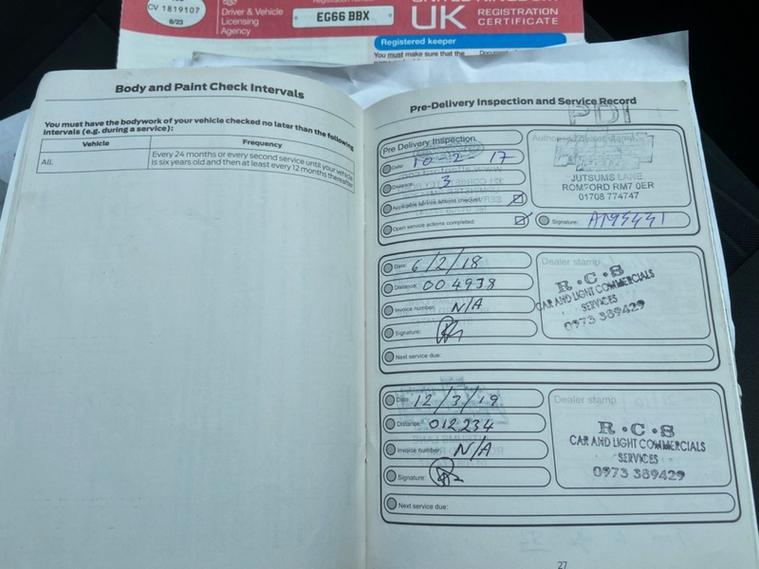 CV 1819107
8/23
Driver & Vehicle
Licensing
Agency
EG66 BBX
UK REGISTRATION
CERTIFICATE
Registered keeper
You must make sure that the
Body and Paint Check Intervals
You must have the bodywork of your vehicle checked no later than the following
intervals (e.g. during a service):
Vehicle Frequency
All. Every 24 months or every second service until your vehicle
is six years old and then at least every 12 months thereafter.
Pre-Delivery Inspection and Service Record
PDI
Pre Delivery Inspection
Date: 10-2-17
Distance: 3
Applicable service actions checked:
Open service actions completed:
JUTSUMS LANE
ROMFORD RM7 0ER
01708 774747
Signature:
Date: 6/2/18
Distance: 004938
Invoice number: N/A
Signature:
Next service due:
Dealer stamp
R·C·S
CAR AND LIGHT COMMERCIALS
SERVICES
0973 389429
Date: 12/3/19
Distance: 012234
Invoice number: N/A
Signature:
Next service due:
Dealer stamp
R·C·S
CAR AND LIGHT COMMERCIALS
SERVICES
0973 389429
27